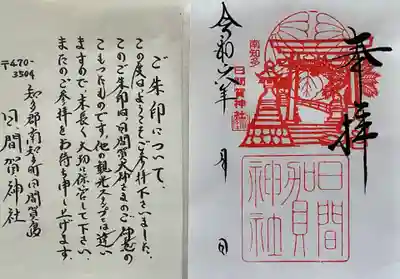 奉拝
南知多
日間賀神社
日間
賀
神社
令和六年 月 日
ご朱印について、
この度はようこそご参拝下さいました。
このご朱印は日間賀大神さまのご神意の
こもったものです。他の観光スタンプとは違い
ますので、末長く大切に保管して下さい。
またのご参拝をお待ち申し上げます。
〒470-
3504
知多郡南知多町日間賀島
日間賀神社